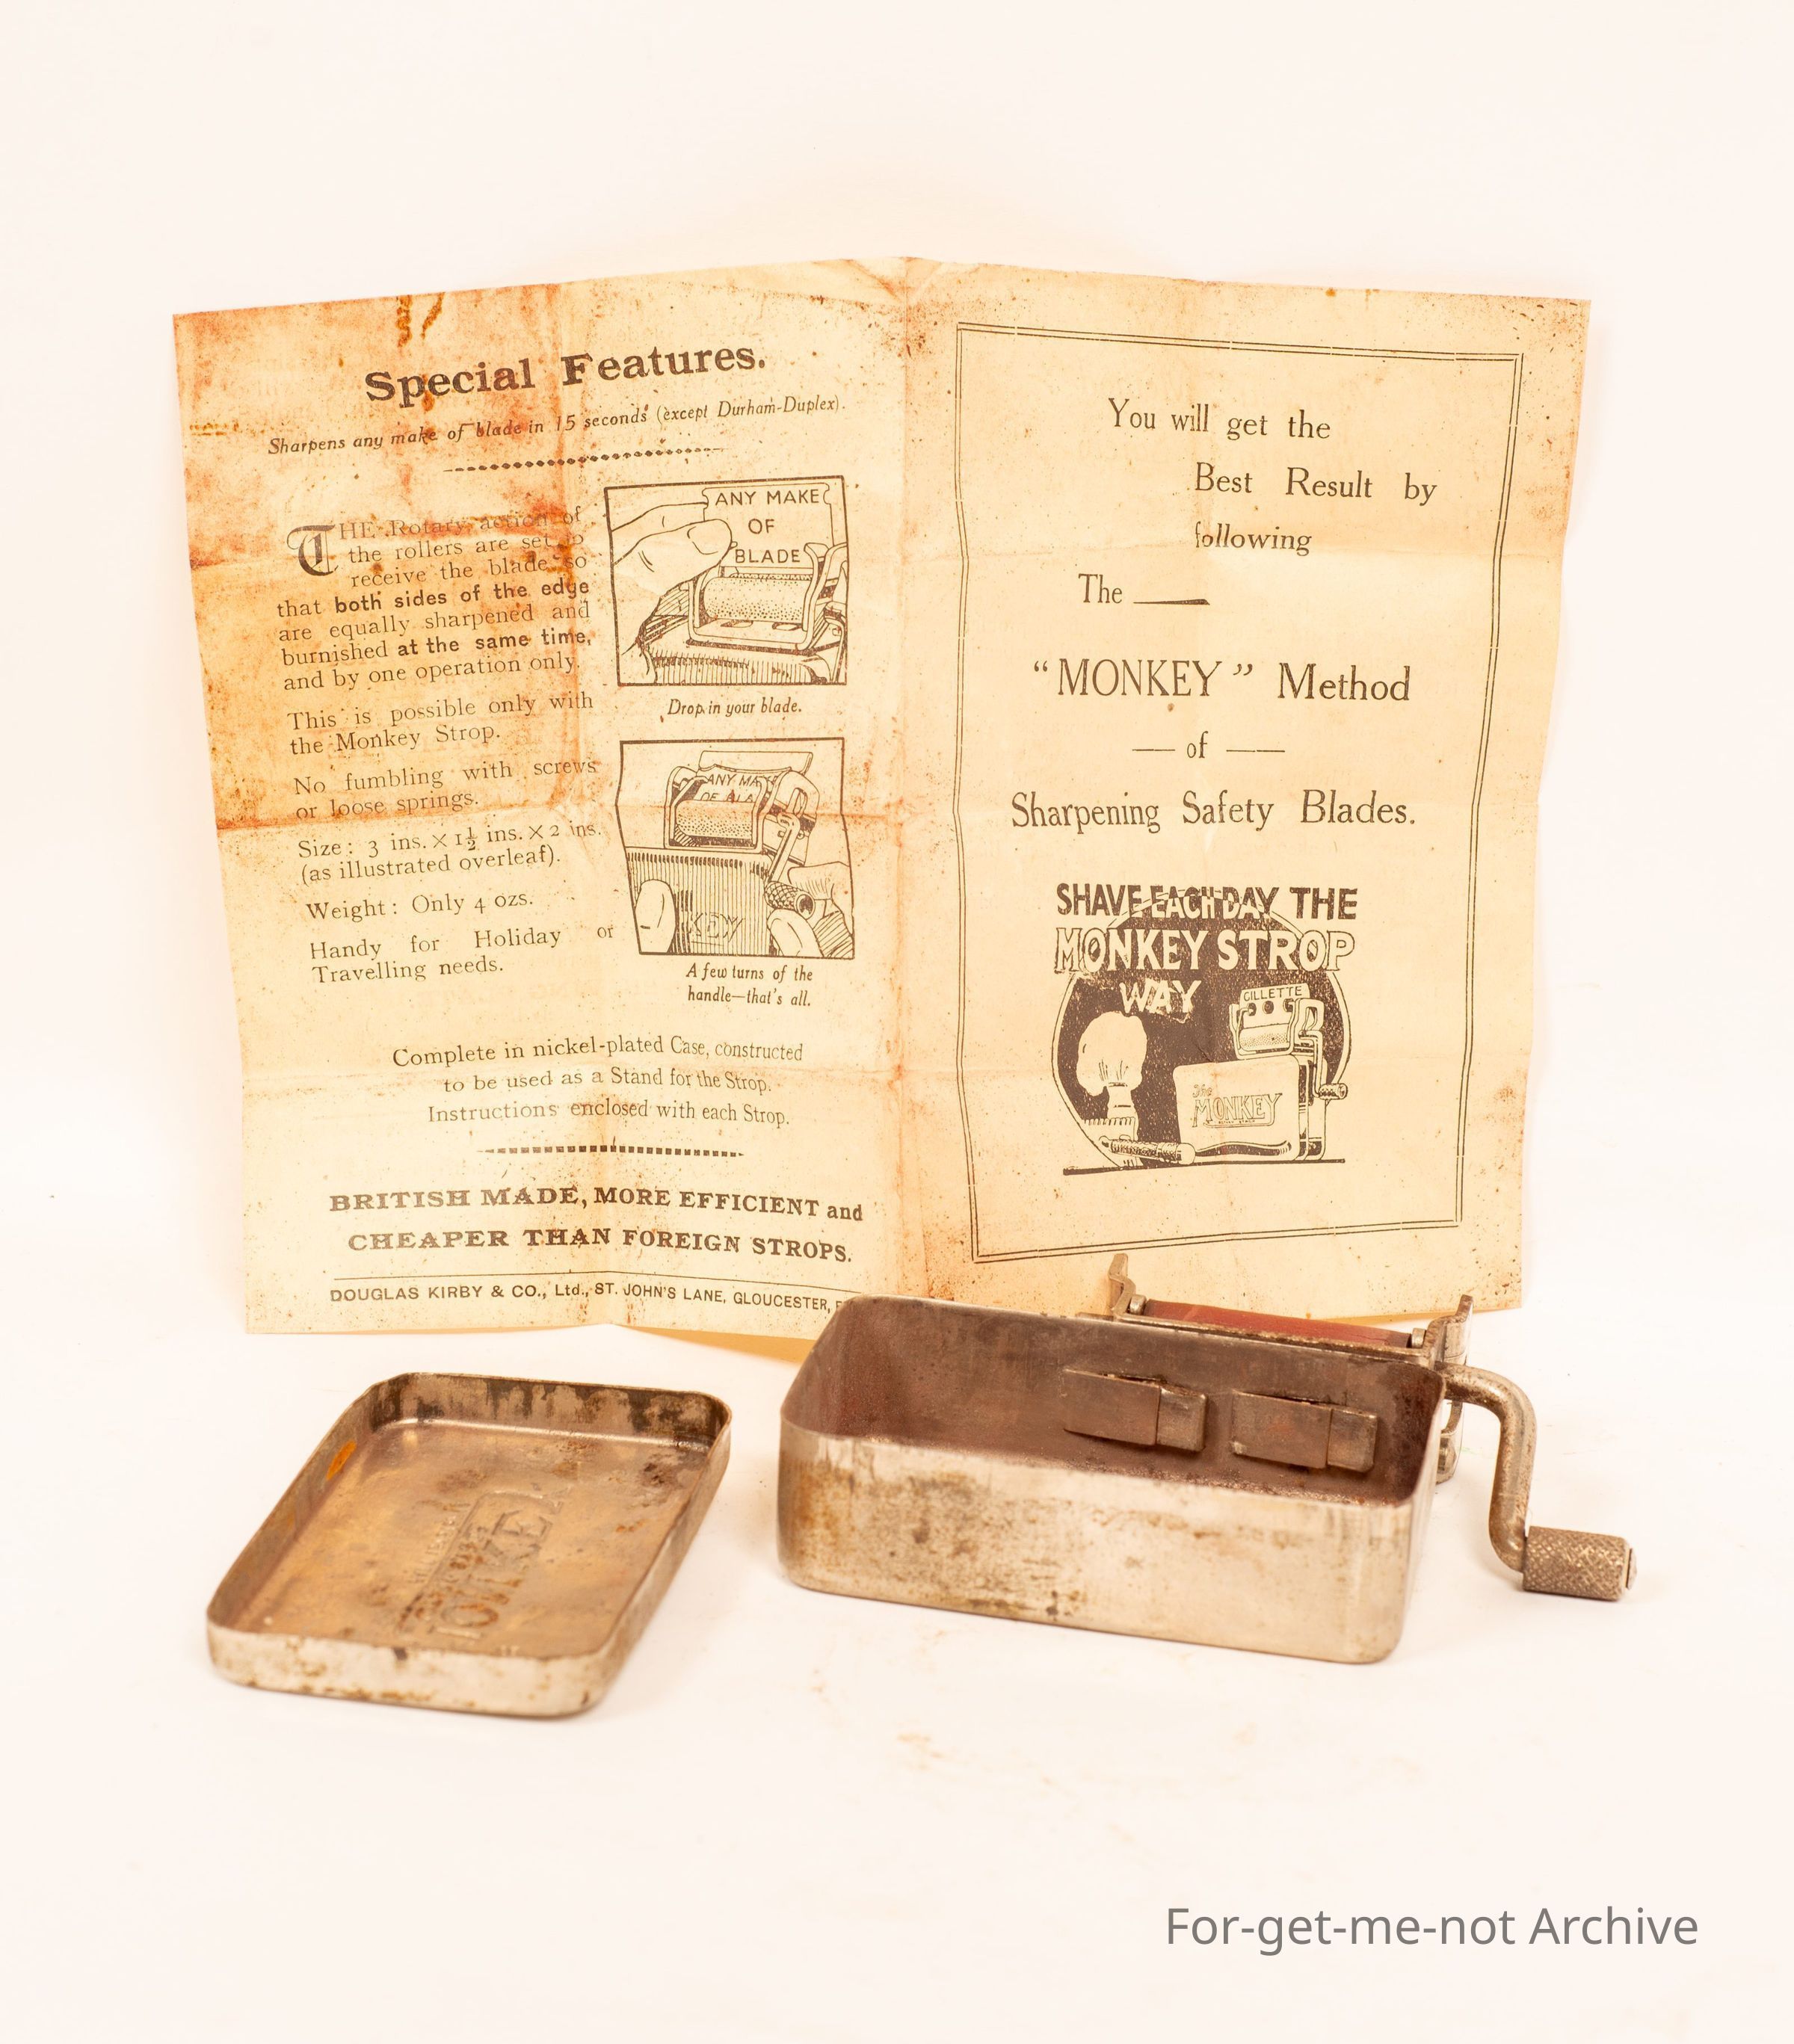 Special Features.
Sharpens any make of blade in 15 seconds (except Durham-Duplex).
THE Rotary action of
the rollers are set to
receive the blade so
that both sides of the edge
are equally sharpened and
burnished at the same time,
and by one operation only.
This is possible only with
the Monkey Strop.
No fumbling with screws
or loose springs.
Size: 3 ins. × 1½ ins. × 2 ins.
(as illustrated overleaf).
Weight: Only 4 ozs.
Handy for Holiday or
Travelling needs.
ANY MAKE
OF
BLADE
Drop in your blade.
ANY MA
OF
KEY
A few turns of the
handle—that's all.
Complete in nickel-plated Case, constructed
to be used as a Stand for the Strop.
Instructions enclosed with each Strop.
BRITISH MADE, MORE EFFICIENT and
CHEAPER THAN FOREIGN STROPS.
DOUGLAS KIRBY & CO., Ltd., ST. JOHN'S LANE, GLOUCESTER,
You will get the
Best Result by
following
The
"MONKEY" Method
— of —
Sharpening Safety Blades.
SHAVE EACH DAY THE
MONKEY STROP
WAY
GILLETTE
The
MONKEY
For-get-me-not Archive